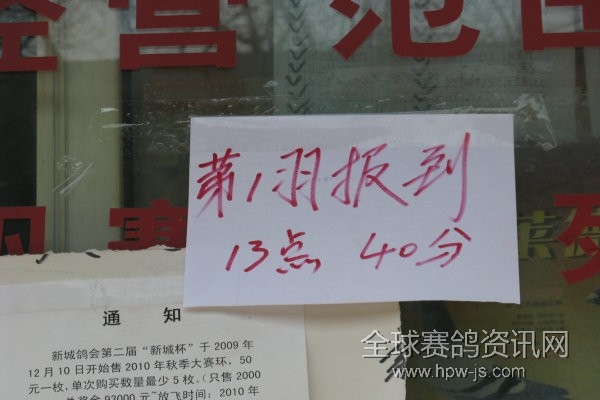 经营范围
第1羽报到
13点 40分
通 知
新城鸽会第二届“新城杯”于2009年
12月10日开始售2010年秋季大赛环，50
元一枚，单次购买数量最少5枚。（只售2000
单奖金93000元~放飞时间：2010年
全球赛鸽资讯网
www.hpw-js.com